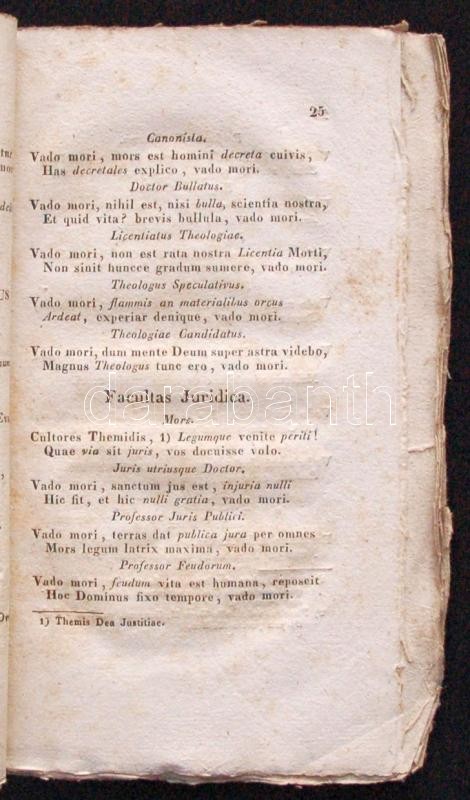 25
Canonista.
Vado mori, mors est homini decreta cuivis,
Has decretales explico, vado mori.
Doctor Bullatus.
Vado mori, nihil est, nisi bulla, scientia nostra,
Et quid vita? brevis bullula, vado mori.
Licentiatus Theologiae.
Vado mori, non est rata nostra Licentia Morti,
Non sinit huncce gradum sumere, vado mori.
Theologus Speculativus.
Vado mori, flammis an materialibus orcus
Ardeat, experiar denique, vado mori.
Theologiae Candidatus.
Vado mori, dum mente Deum super astra videbo,
Magnus Theologus tunc ero, vado mori.
Facultas Juridica.
Mors.
Cultores Themidis, 1) Legumque venite periti!
Quae via sit juris, vos docuisse volo.
Juris utriusque Doctor.
Vado mori, sanctum jus est, injuria nulli
Hic fit, et hic nulli gratia, vado mori.
Professor Juris Publici.
Vado mori, terras dat publica jura per omnes
Mors legum latrix maxima, vado mori.
Professor Feudorum.
Vado mori, feudum vita est humana, reposcit
Hoc Dominus fixo tempore, vado mori.
1) Themis Dea Justitiae.
darabanth